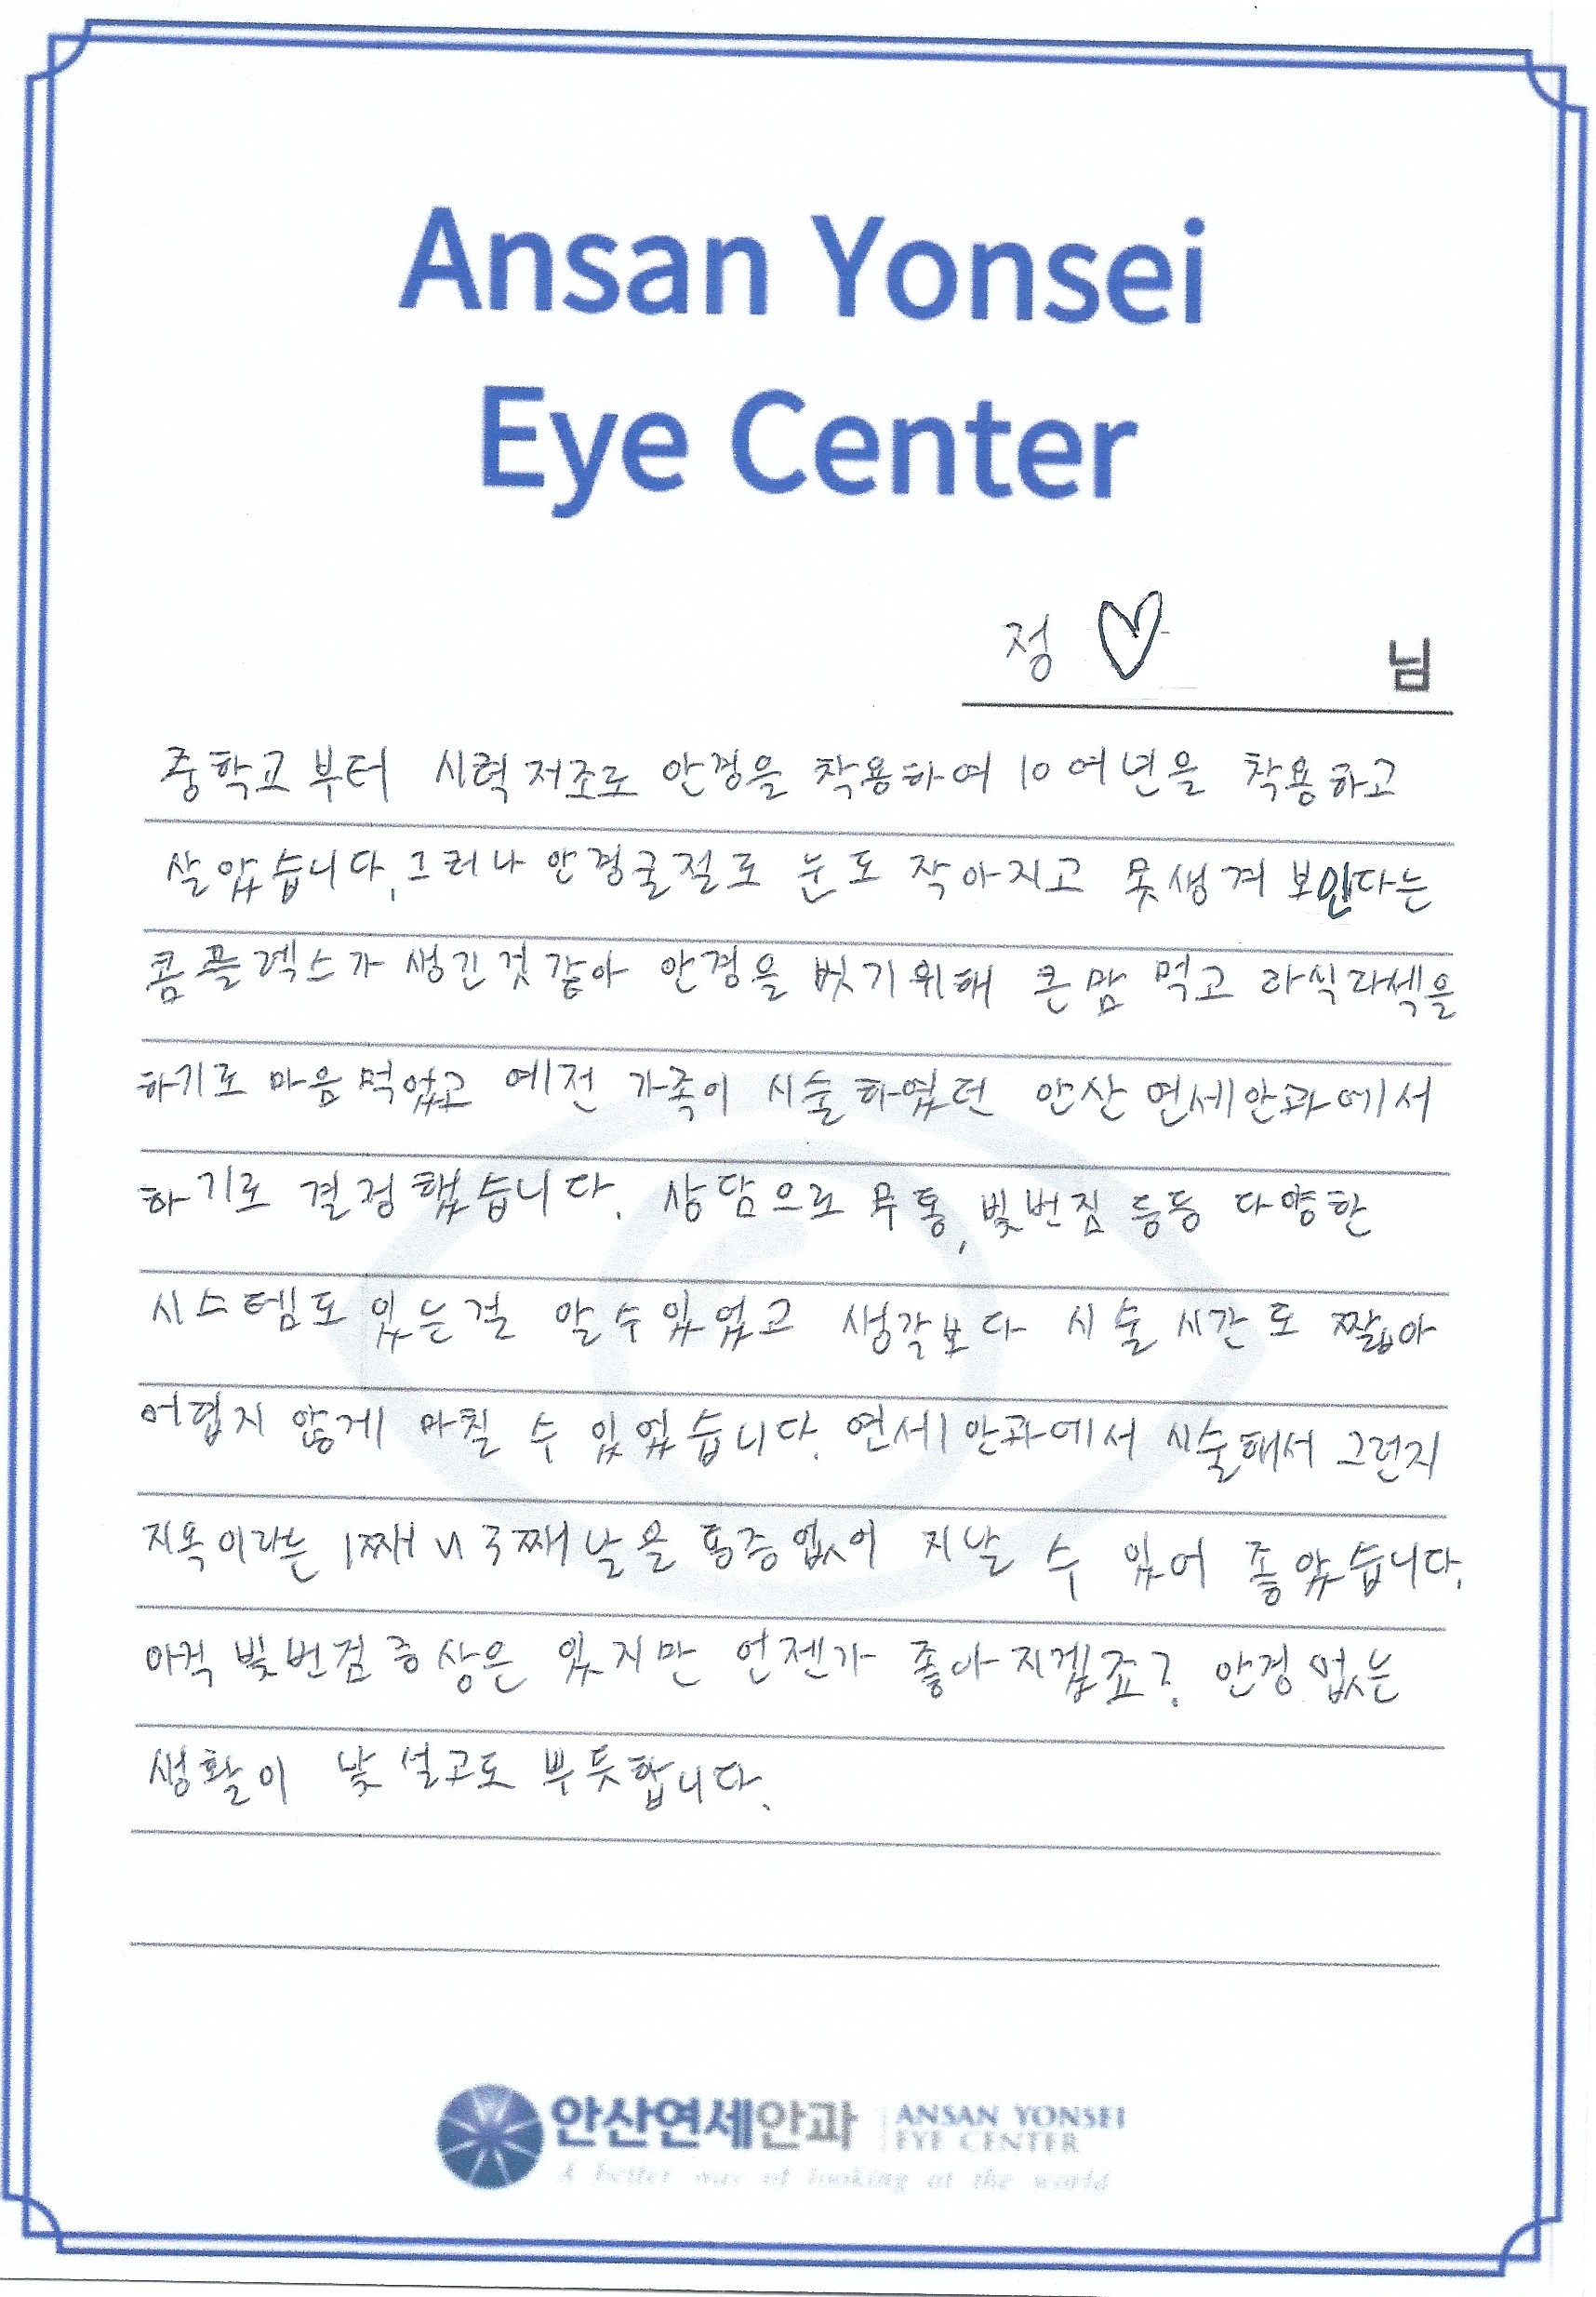 Ansan Yonsei
Eye Center
정 ♡ 님
중학교부터 시력저조로 안경을 착용하여 10여년을 착용하고
살았습니다. 그러나 안경굴절로 눈도 작아지고 못생겨 보인다는
콤플렉스가 생긴것같아 안경을 벗기위해 큰맘 먹고 라식라섹을
하기로 마음먹었고 예전 가족이 시술하였던 안산연세안과에서
하기로 결정했습니다. 상담으로 무통, 빛번짐 등등 다양한
시스템도 있는걸 알수있었고 생각보다 시술시간도 짧아
어렵지 않게 마칠 수 있었습니다. 연세안과에서 시술해서 그런지
지옥이라는 1째 ~ 3째날을 통증없이 지날 수 있어 좋았습니다.
아직 빛번짐증상은 있지만 언젠가 좋아지겠죠? 안경없는
생활이 낯설고도 뿌듯합니다.
안산연세안과 ANSAN YONSEI
EYE CENTER
A better way of looking at the world